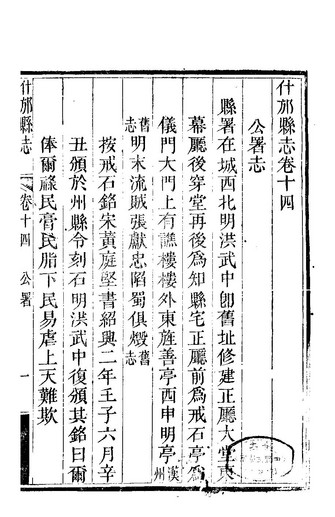 什邡縣志卷十四
公署志
縣署在城西北明洪武中卽舊址修建正廳大堂東
幕廳後穿堂再後爲知縣宅正廳前爲戒石亭爲
儀門大門上有譙樓樓外東旌善亭西申明亭漢州
舊志明末流賊張獻忠陷蜀俱燬舊志
按戒石銘宋黃庭堅書紹興二年壬子六月辛
丑頒於州縣令刻石明洪武中復頒其銘曰爾
俸爾祿民膏民脂下民易虐上天難欺
什邡縣志
卷十四 公署 一